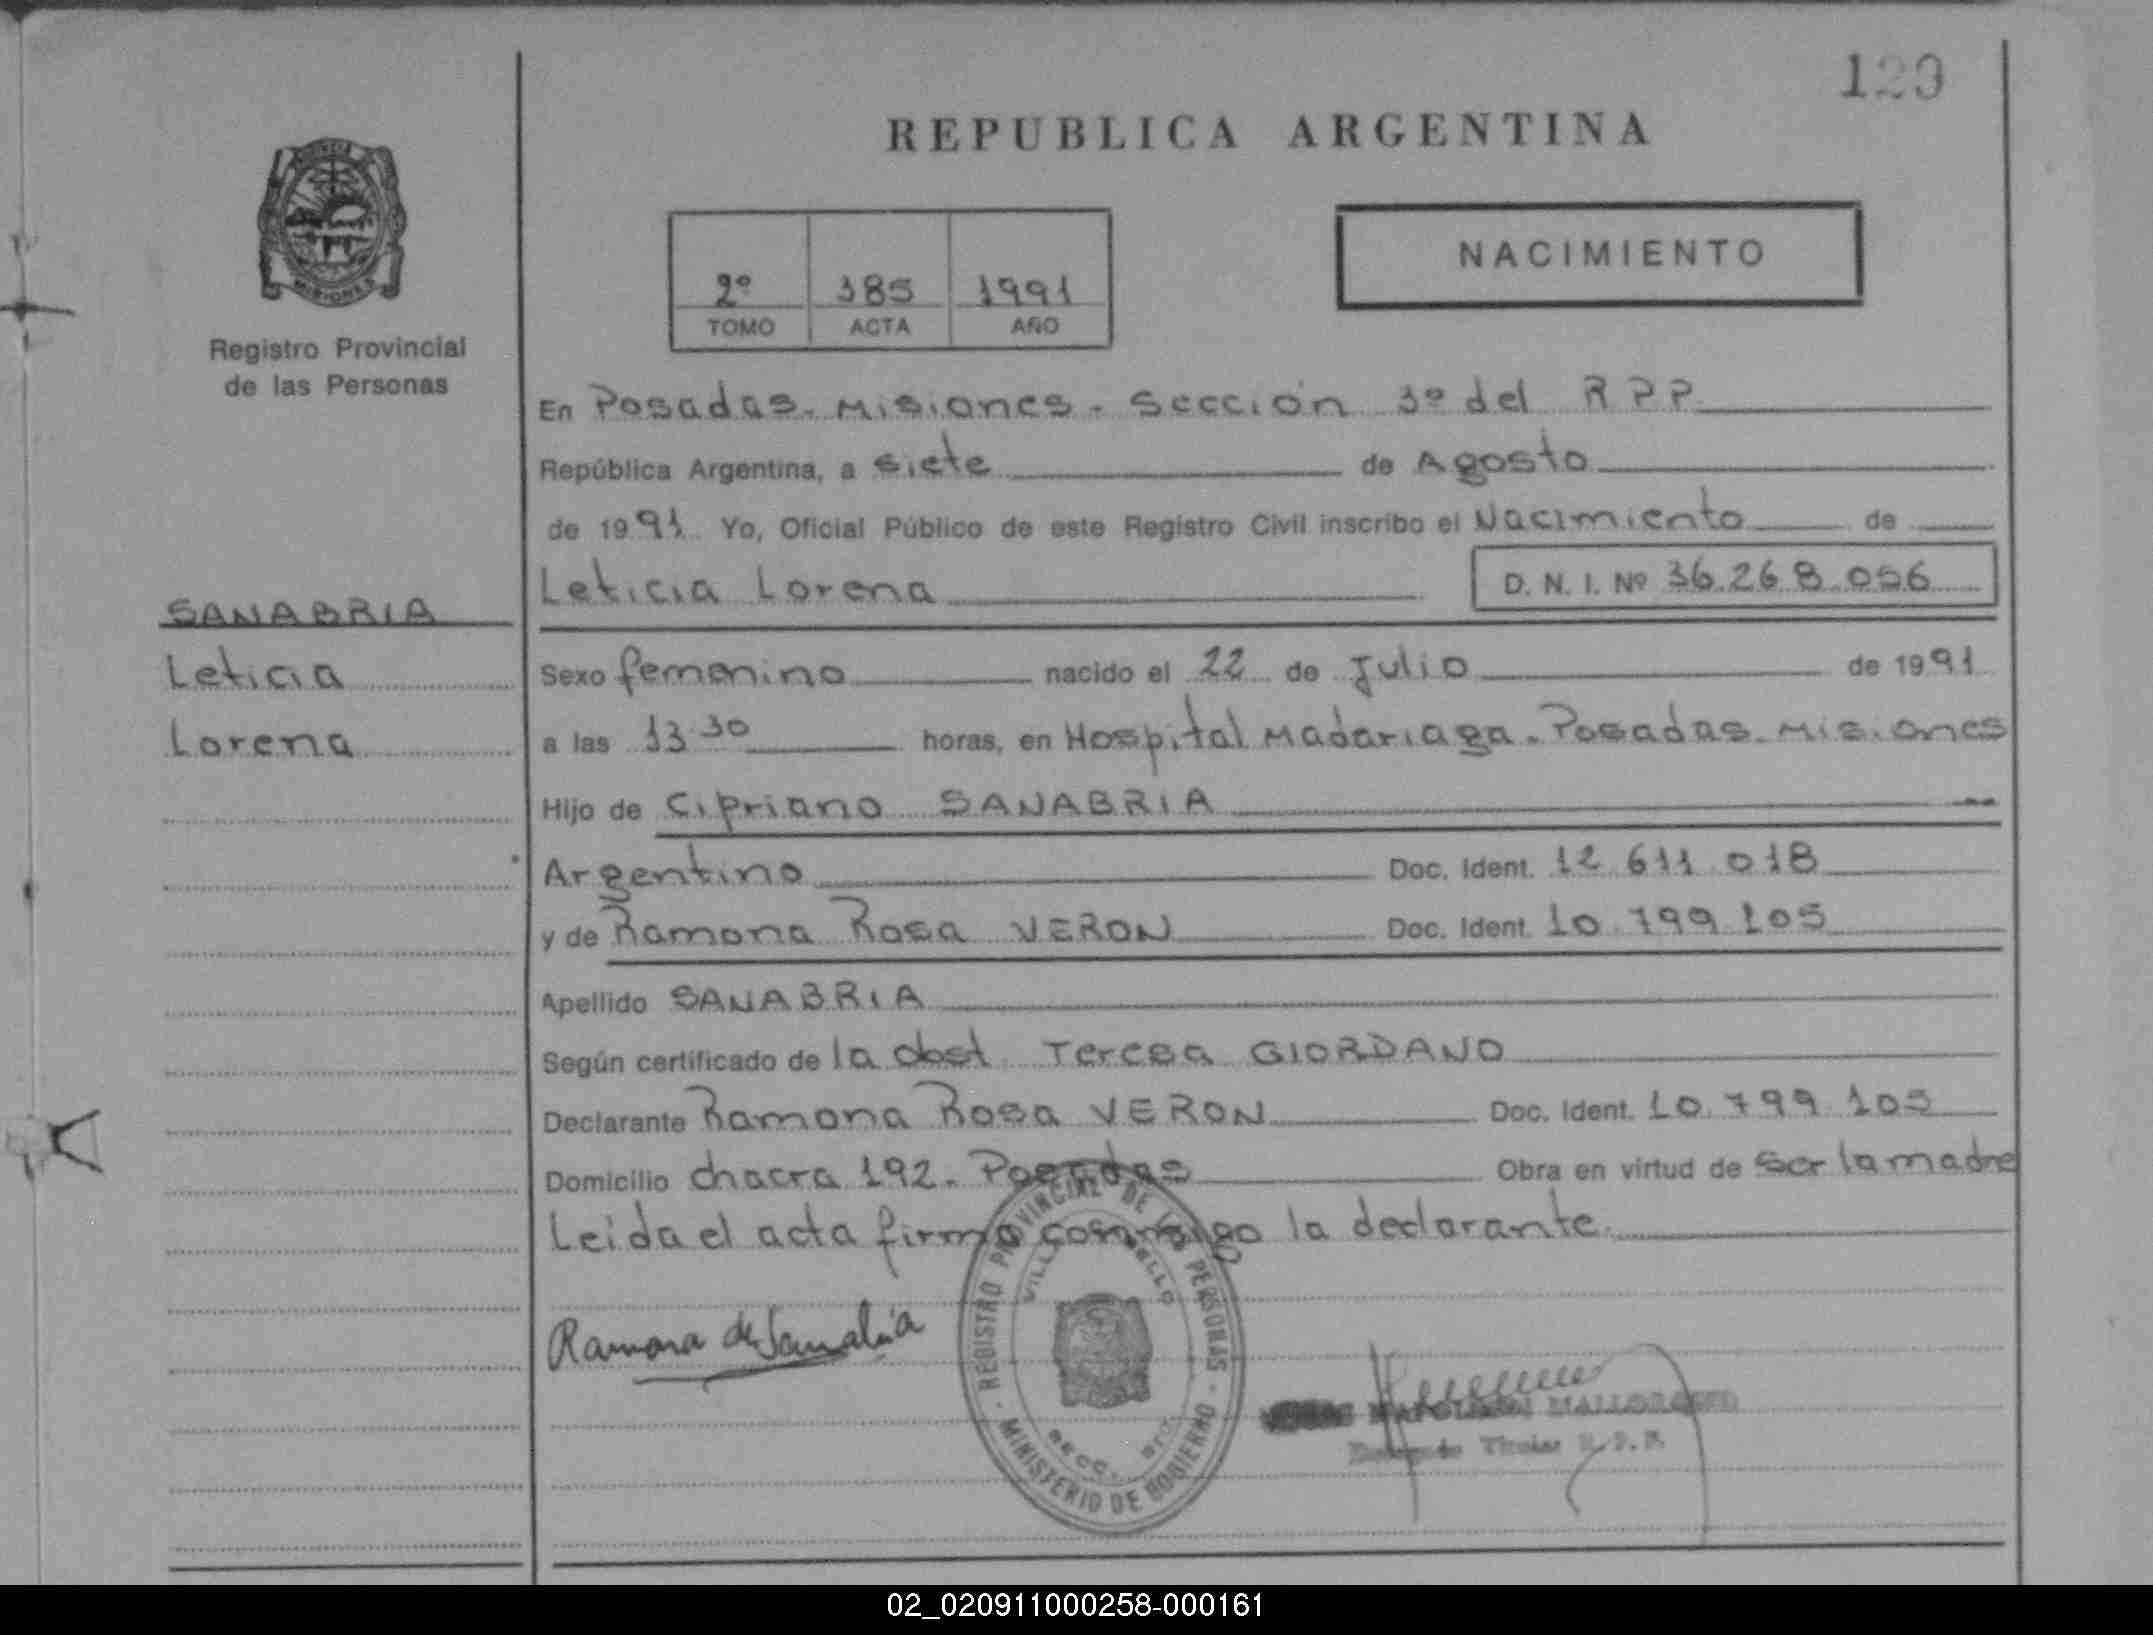 129
REPUBLICA ARGENTINA
MISIONES
Registro Provincial
de las Personas
2º 385 1991
TOMO ACTA AÑO
NACIMIENTO
En Posadas. Misiones. Sección 3º del RPP
República Argentina, a siete de Agosto
de 1991 Yo, Oficial Público de este Registro Civil inscribo el Nacimiento de
Leticia Lorena D. N. I. Nº 36.268.056
SANABRIA
Leticia
Lorena
Sexo femenino nacido el 22 de Julio de 1991
a las 13 30 horas, en Hospital Madariaga. Posadas. Misiones
Hijo de Cipriano SANABRIA
Argentino Doc. Ident. 12 611 018
y de Ramona Rosa VERON Doc. Ident. 10 799 105
Apellido SANABRIA
Según certificado de la obst. Teresa GIORDANO
Declarante Ramona Rosa VERON Doc. Ident. 10.799.105
Domicilio chacra 192. Posadas Obra en virtud de ser la madre
Leida el acta firma conmigo la declarante.
Ramona de Sanabria
REGISTRO PROVINCIAL DE LAS PERSONAS
MINISTERIO DE GOBIERNO
Titular R.P.P.
02_020911000258-000161